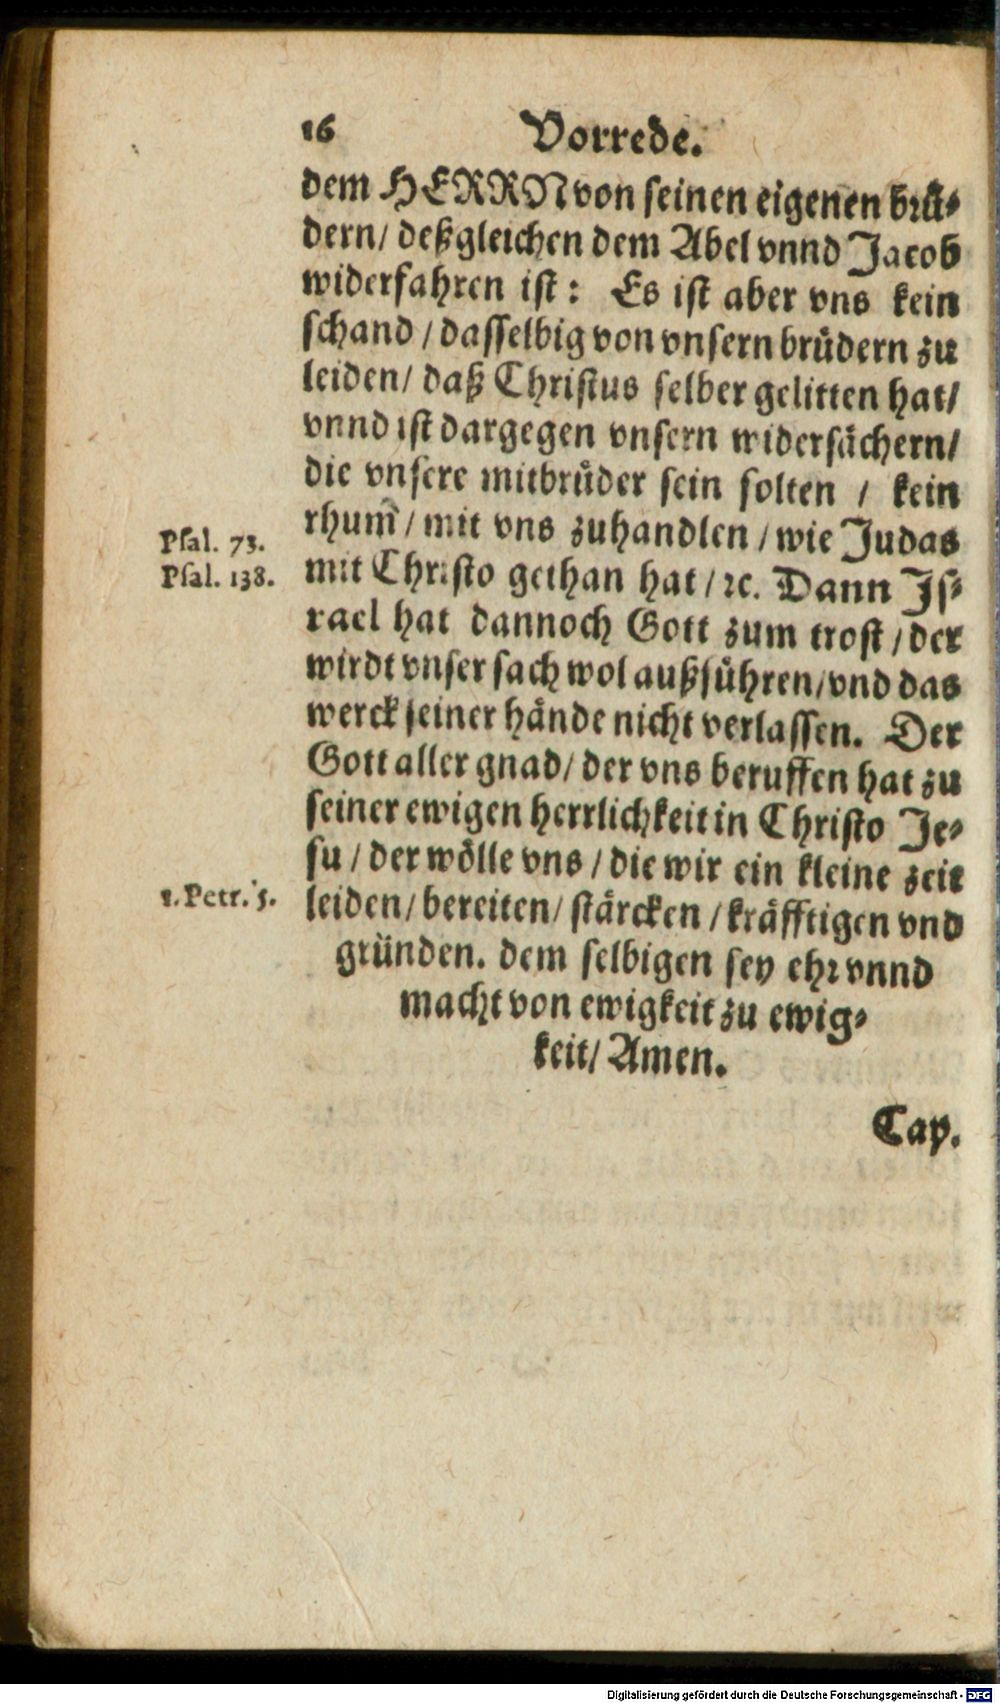 16 Vorrede.
dem HERRN von seinen eigenen brü-
dern/ deßgleichen dem Abel vnnd Jacob
widerfahren ist: Es ist aber vns kein
schand / dasselbig von vnsern brüdern zu
leiden/ daß Christus selber gelitten hat/
vnnd ist dargegen vnsern widersächern/
die vnsere mitbrüder sein solten / kein
rhum / mit vns zuhandlen / wie Judas
Psal. 73.
mit Christo gethan hat / ꝛc. Dann Js-
Psal. 138.
rael hat dannoch Gott zum trost / der
wirdt vnser sach wol außführen/ vnd das
werck seiner hände nicht verlassen. Der
Gott aller gnad/ der vns beruffen hat zu
seiner ewigen herrlichkeit in Christo Je-
su / der wölle vns / die wir ein kleine zeit
1. Petr. 5.
leiden/ bereiten/ stärcken / kräfftigen vnd
gründen. dem selbigen sey ehr vnnd
macht von ewigkeit zu ewig-
keit/ Amen.
Cap.
Digitalisierung gefördert durch die Deutsche Forschungsgemeinschaft - DFG